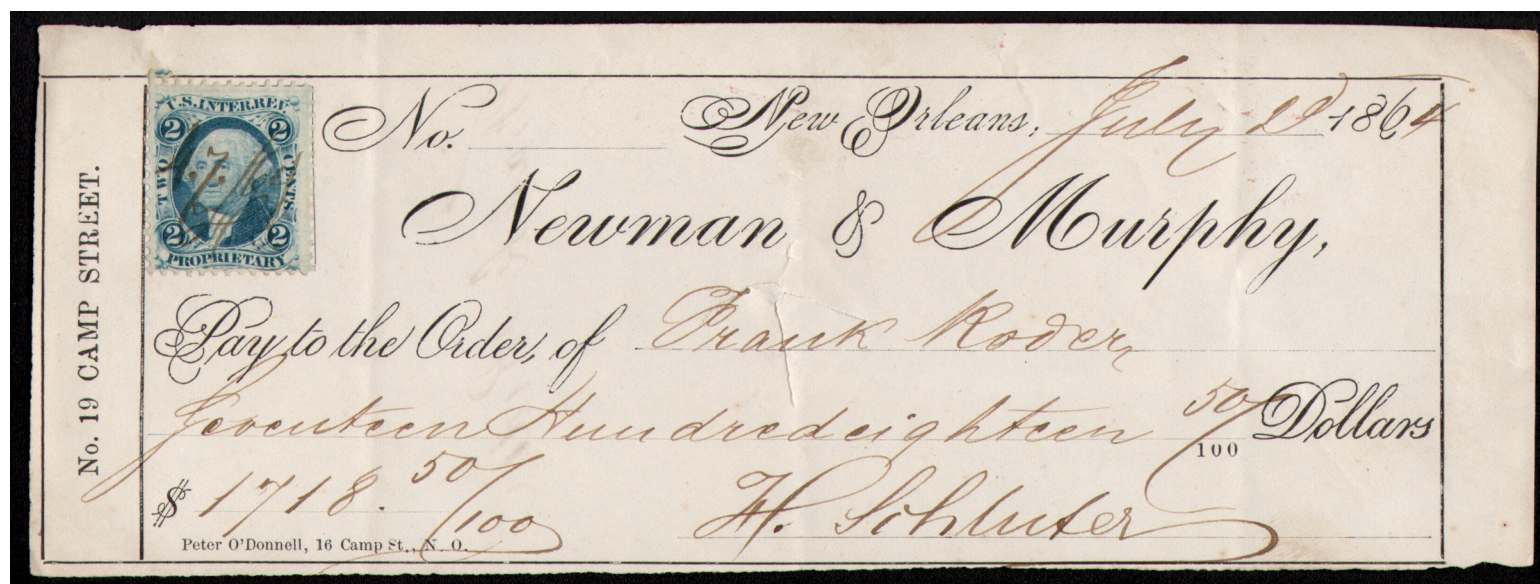 U.S. INTER. REV.
2 2
TWO CENTS
2 2
PROPRIETARY
No. 19 CAMP STREET.
No. New Orleans, July 2d 1864
Newman & Murphy,
Pay to the Order, of Frank Roder
Seventeen Hundred eighteen 50/100 Dollars
$ 1718. 50/100 H. Schluter
Peter O'Donnell, 16 Camp St., N. O.